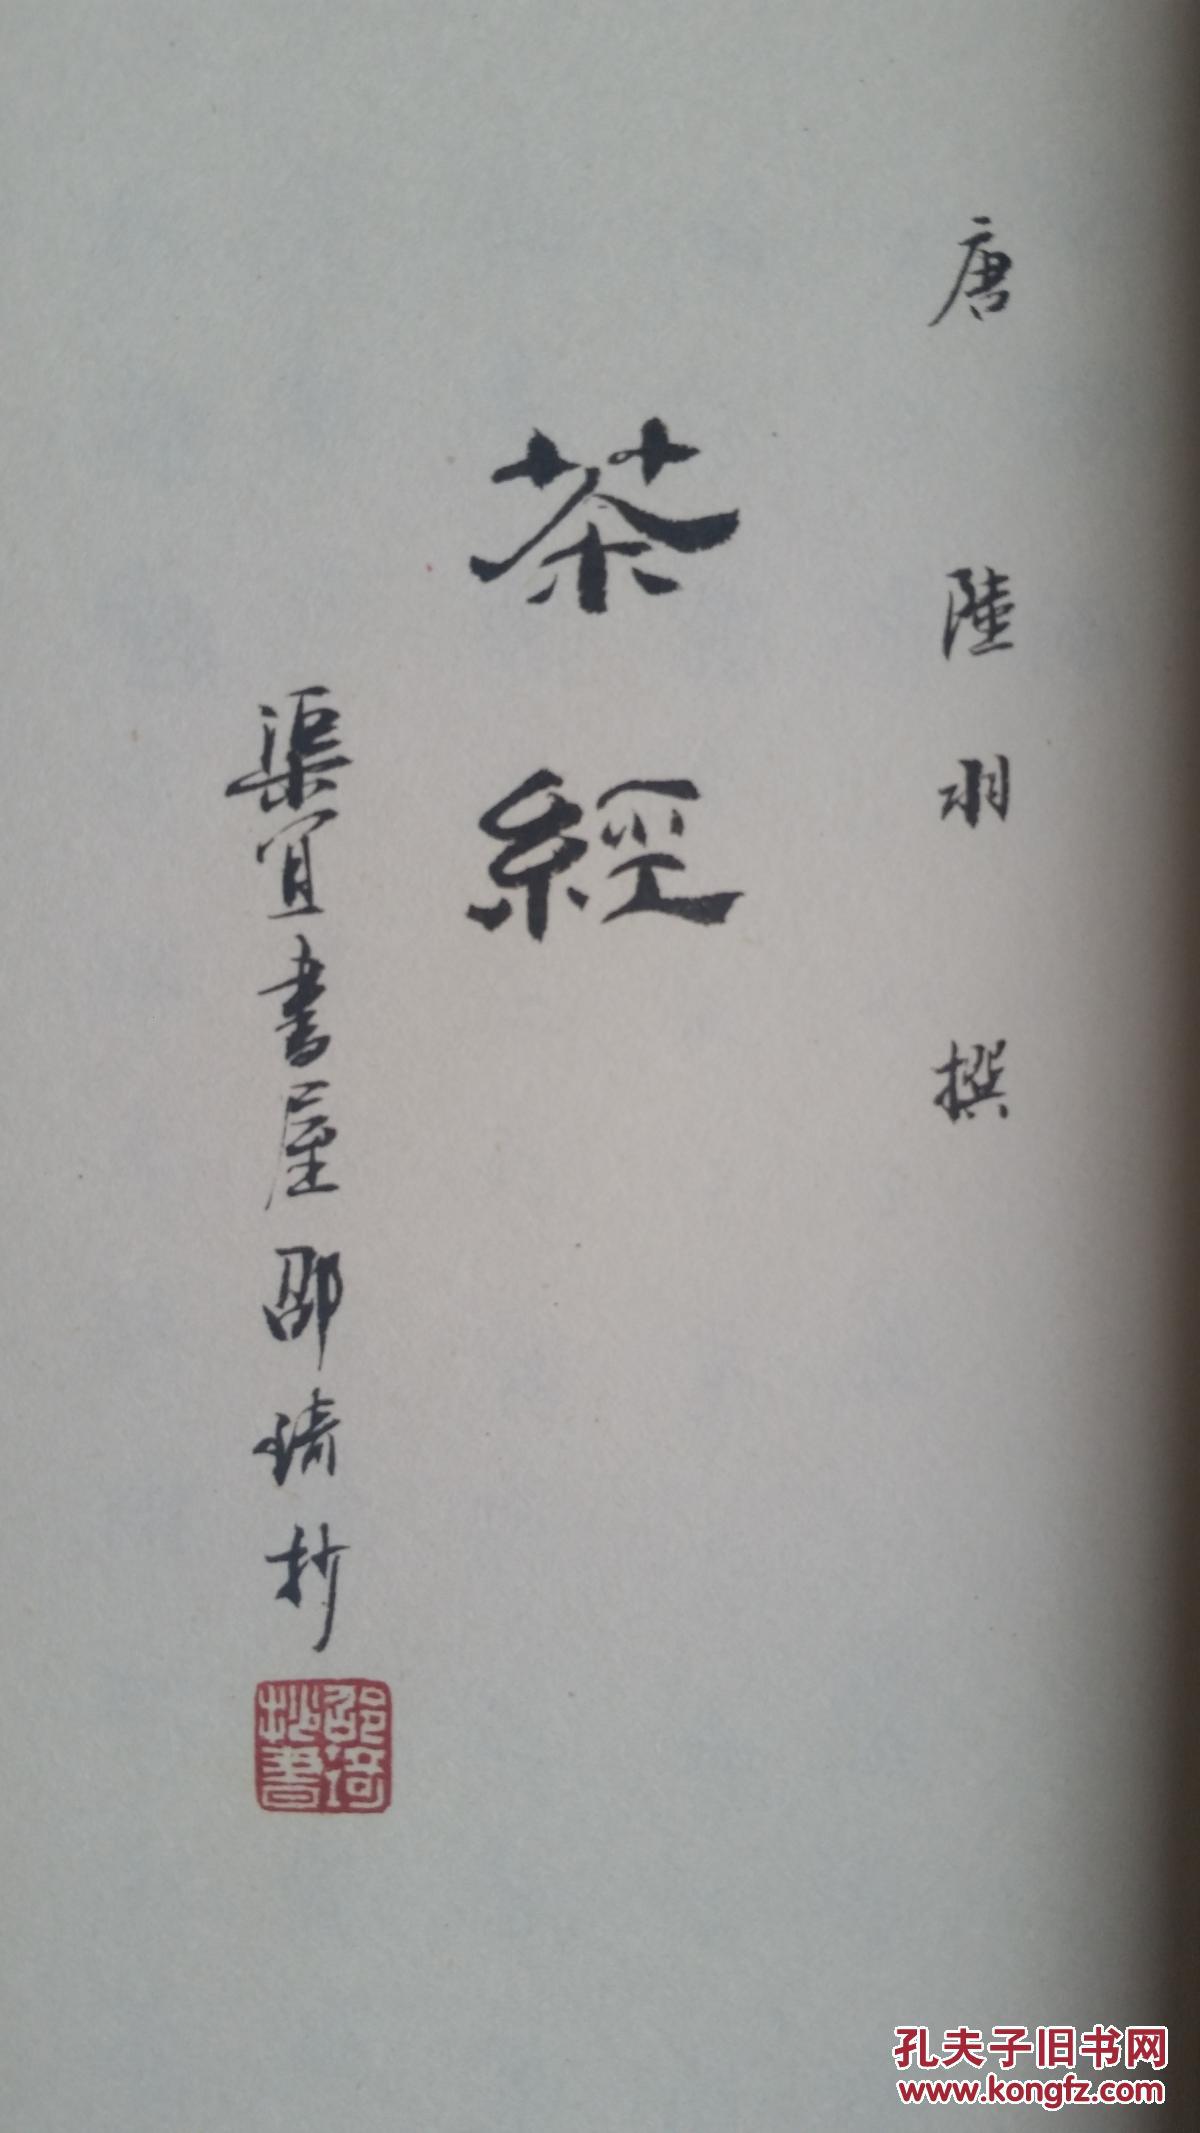 唐 陸羽 撰
茶經
渠宜書屋邵琦抄
邵琦抄書
孔夫子旧书网
www.kongfz.com